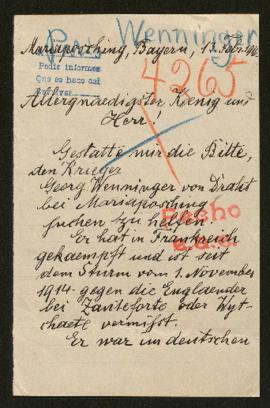 Wenninger
Mariaposching, Bayern, 13. Febr. 1916
Pedir informes
Que se haga así
4265
Allergnaedigster Koenig und
Herr!
Gestatte mir die Bitte,
den Krieger
Georg Wenninger von Draht
bei Mariaposching
suchen zu helfen.
Fecho
Er hat in Frankreich
gekaempft und ist seit
dem Sturm vom 1. November
1914 gegen die Englaender
bei Zanteforte oder Wyt-
chaete vermißt.
Er war im deutschen